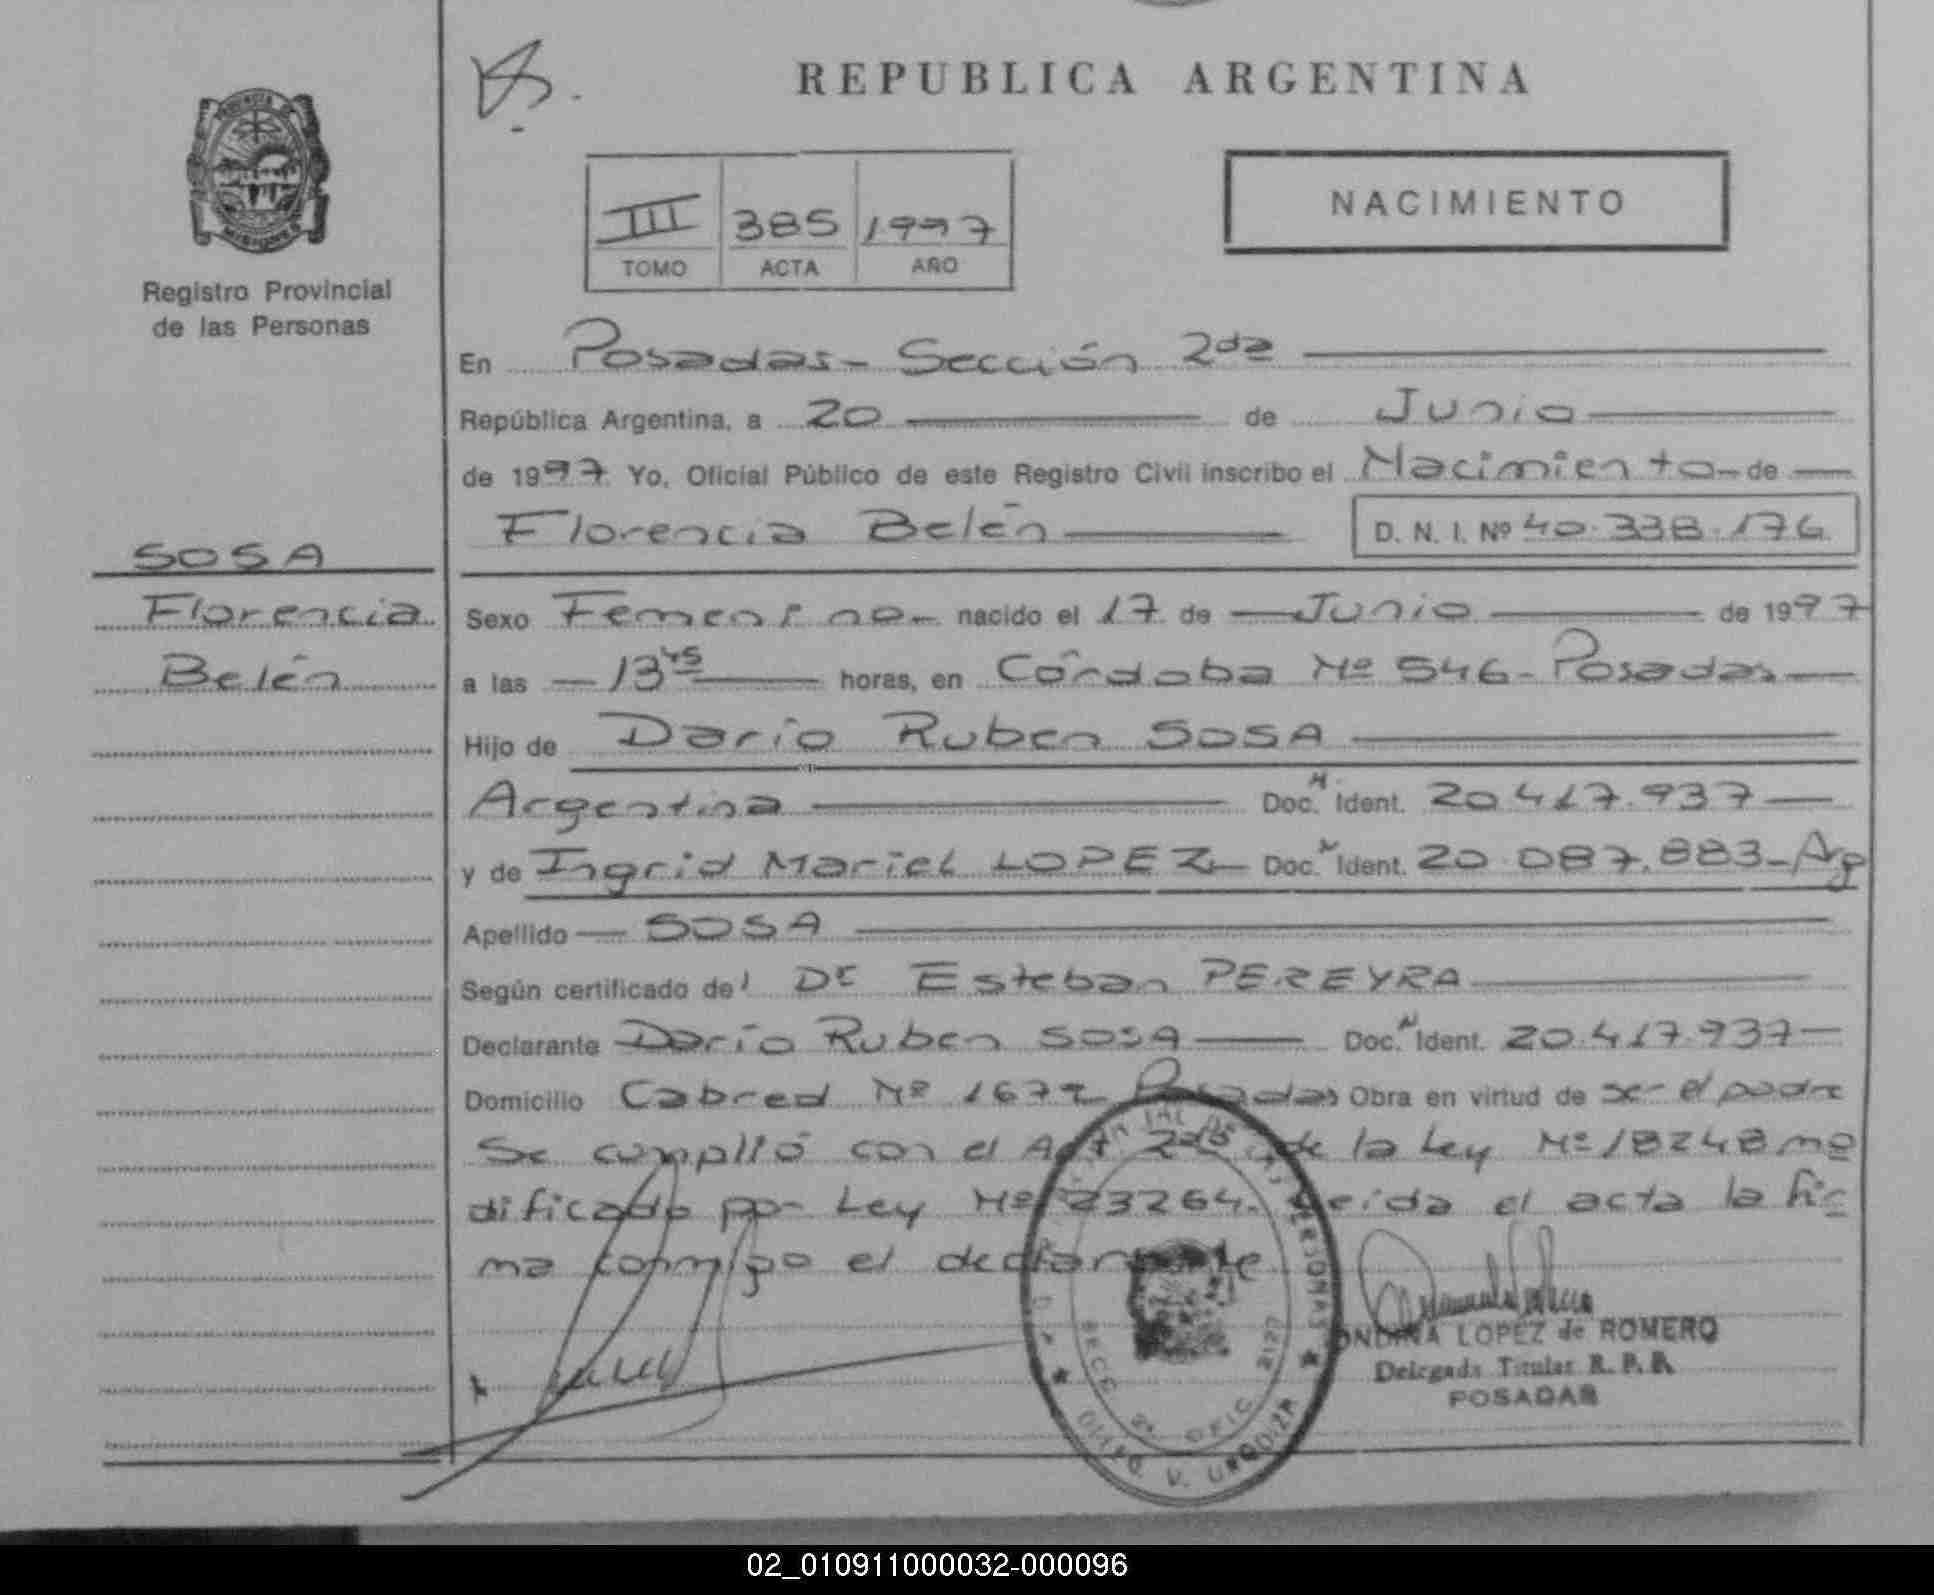 REPUBLICA ARGENTINA
NACIMIENTO
III 385 1997
TOMO ACTA AÑO
Registro Provincial
de las Personas
En Posadas - Sección 2da
República Argentina, a 20 de Junio
de 1997 Yo, Oficial Público de este Registro Civil inscribo el Nacimiento de
Florencia Belén D. N. I. Nº 40.338.176
SOSA
Florencia
Belén
Sexo Femenino - nacido el 17 de Junio de 1997
a las 13 45 horas, en Córdoba Nº 546 - Posadas
Hijo de Darío Ruben SOSA
Argentina Doc. N Ident. 20.417.937
y de Ingrid Mariel LOPEZ Doc. N Ident. 20.087.883 - Arg
Apellido SOSA
Según certificado del Dr Esteban PEREYRA
Declarante Darío Ruben SOSA Doc. N Ident. 20.417.937
Domicilio Cabred Nº 1677 Posadas Obra en virtud de ser el padre
Se cumplió con el Art 2do de la Ley Nº 18248 mo
dificado por Ley Nº 23264. Leída el acta la fir
ma conmigo el declarante
ONDINA LOPEZ de ROMERO
Delegada Titular R. P. P.
POSADAS
DE LAS PERSONAS
SECC 2ª OFIC 2127
V. URQUIZA
02_010911000032-000096